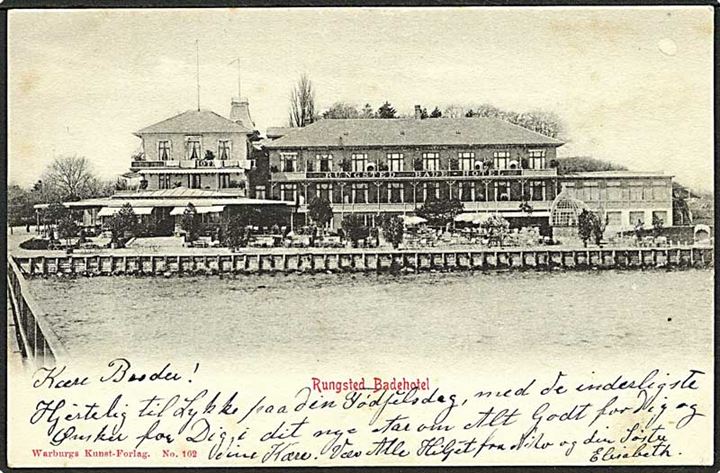 HOTEL
RUNGSTED BADE-HOTEL
Rungsted Badehotel
Kære Broder!
Hjertelig til Lykke paa din Fødselsdag, med de inderligste
Ønsker for Dig, i dit nye Aar om Alt Godt for Dig og
Kære. Vær Alle Hilset fra og din Søster
Elisabeth.
Warburgs Kunst-Forlag. No. 162